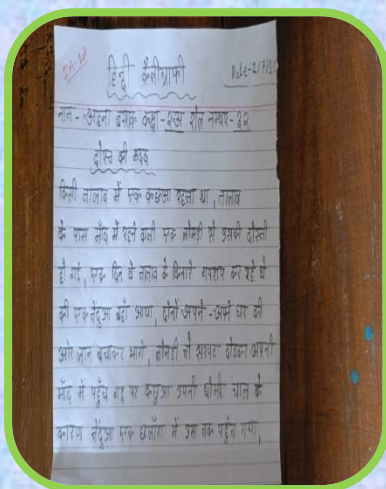 2A-
हिन्दी कैलीग्राफी
Date-2/7/
नाम - अहना बसाक कक्षा - २अ रोल नम्बर - ३२
दोस्त की मदद
किसी तालाब में एक कछुआ रहता था, तालाब
के पास माँद में रहने वाली एक लोमड़ी से उसकी दोस्ती
हो गई, एक दिन वे तलाव के किनारे गपशप कर रहे थे
की एक तेंदुआ वहाँ आया, दोनों अपने - अपने घर की
ओर जान बचाकर भागे, लोमड़ी तो सरपट दौड़कर अपनी
माँद में पहुँच गई पर कछुआ अपनी धीमी चाल के
कारण तेंदुआ एक छलाँग में उस तक पहुँच गया,